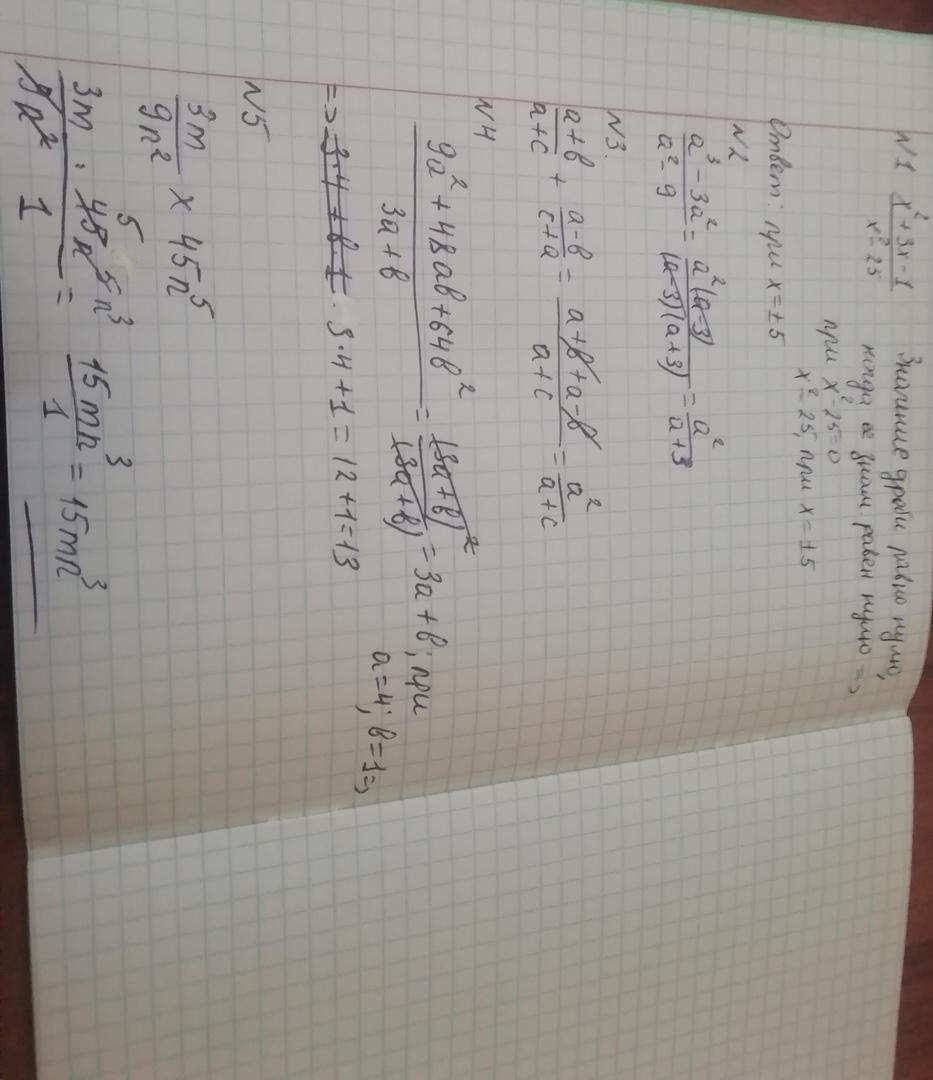 N1 x²+3x-1 / x²-25 Значение дроби равно нулю,
когда её знам. равен нулю =>
при x²-25=0
x²=25, при x=±5
Ответ: при x=±5
N2
a³-3a² / a²-9 = a²(a-3) / (a-3)(a+3) = a² / a+3
N3.
a+b / a+c + a-b / c+a = a+b+a-b / a+c = a² / a+c
N4
9a²+48ab+64b² / 3a+b = (3a+b)² / (3a+b) = 3a+b; при
a=4; b=1=>
=> 3·4+1=12+1=13
N5
3m / 9n² x 45n⁵
3m / 9n² · 45n⁵ n³ / 1 = 15mn³ / 1 = 15mn³